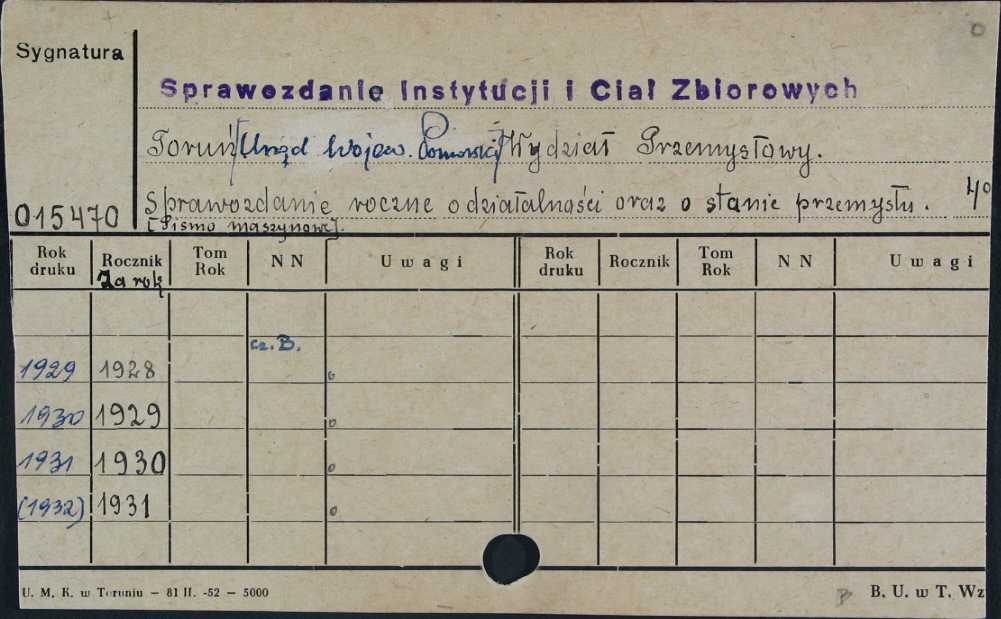 Sygnatura
Sprawozdanie Instytucji i Ciał Zbiorowych
Toruń [Urząd Wojew. Pomorski] Wydział Przemysłowy.
015470 Sprawozdanie roczne o działalności oraz o stanie przemysłu. 4o
[Pismo maszynowe].
Rok druku Rocznik Za rok Tom Rok N N Uwagi Rok druku Rocznik Tom Rok N N Uwagi
cz. B.
1929 1928
1930 1929
1931 1930
(1932) 1931
U. M. K. w Toruniu — 81 II. -52 — 5000 B. U. w T. Wz